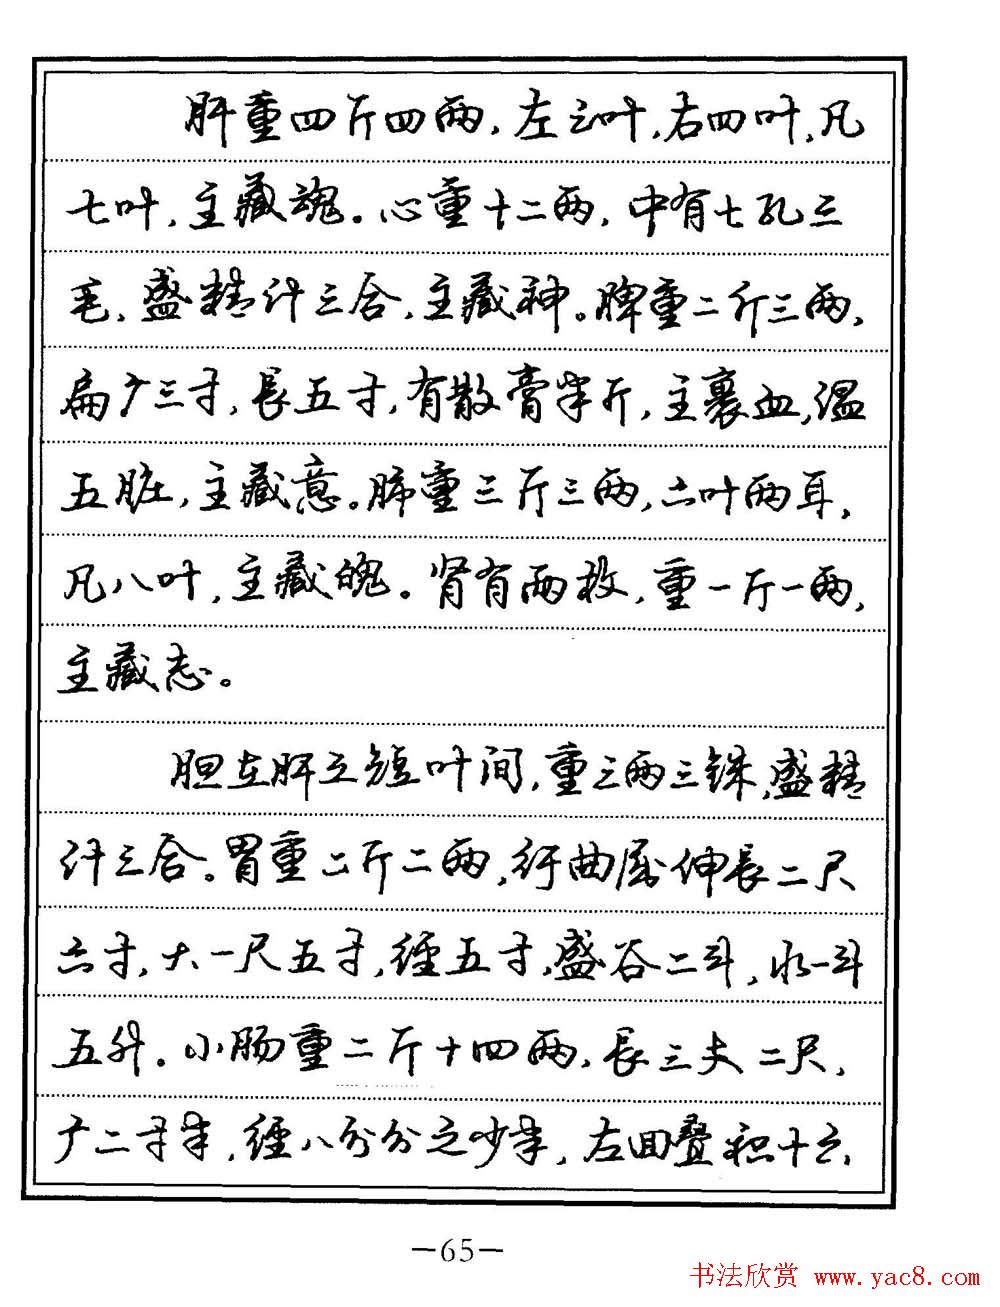 肝重四斤四两，左三叶，右四叶，凡
七叶，主藏魂。心重十二两，中有七孔三
毛，盛精汁三合，主藏神。脾重二斤三两，
扁广三寸，長五寸，有散膏半斤，主裹血，温
五脏，主藏意。肺重三斤三两，六叶两耳，
凡八叶，主藏魄。肾有两枚，重一斤一两，
主藏志。
胆在肝之短叶间，重三两三铢，盛精
汁三合。胃重二斤二两，纡曲屈伸長二尺
六寸，大一尺五寸，經五寸，盛谷二斗，水一斗
五升。小肠重二斤十四两，長三丈二尺，
广二寸半，經八分分之少半，左回叠积十六
—65—
书法欣赏 www.yac8.com